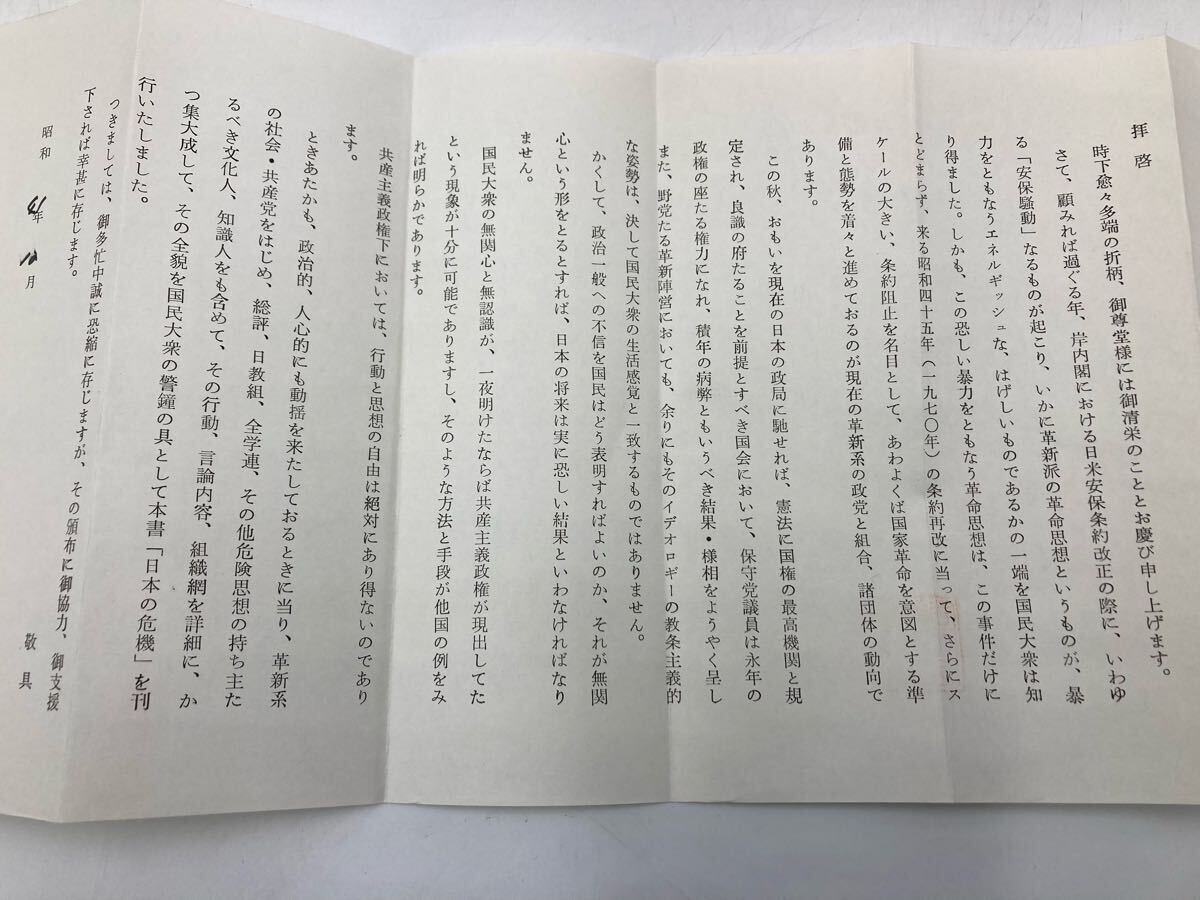 拝啓
時下愈々多端の折柄、御尊堂様には御清栄のこととお慶び申し上げます。
さて、顧みれば過ぐる年、岸内閣における日米安保条約改正の際に、いわゆ
る「安保騒動」なるものが起こり、いかに革新派の革命思想というものが、暴
力をともなうエネルギッシュな、はげしいものであるかの一端を国民大衆は知
り得ました。しかも、この恐しい暴力をともなう革命思想は、この事件だけに
とどまらず、来る昭和四十五年(一九七〇年)の条約再改に当って、さらにス
ケールの大きい、条約阻止を名目として、あわよくば国家革命を意図とする準
備と態勢を着々と進めておるのが現在の革新系の政党と組合、諸団体の動向で
あります。
この秋、おもいを現在の日本の政局に馳せれば、憲法に国権の最高機関と規
定され、良識の府たることを前提とすべき国会において、保守党議員は永年の
政権の座たる権力になれ、積年の病弊ともいうべき結果・様相をようやく呈し
また、野党たる革新陣営においても、余りにもそのイデオロギーの教条主義的
な姿勢は、決して国民大衆の生活感覚と一致するものではありません。
かくして、政治一般への不信を国民はどう表明すればよいのか、それが無関
心という形をとるとすれば、日本の将来は実に恐しい結果といわなければなり
ません。
国民大衆の無関心と無認識が、一夜明けたならば共産主義政権が現出してた
という現象が十分に可能でありますし、そのような方法と手段が他国の例をみ
れば明らかであります。
共産主義政権下においては、行動と思想の自由は絶対にあり得ないのであり
ます。
ときあたかも、政治的、人心的にも動揺を来たしておるときに当り、革新系
の社会・共産党をはじめ、総評、日教組、全学連、その他危険思想の持ち主た
るべき文化人、知識人をも含めて、その行動、言論内容、組織網を詳細に、か
つ集大成して、その全貌を国民大衆の警鐘の具として本書「日本の危機」を刊
行いたしました。
つきましては、御多忙中誠に恐縮に存じますが、その頒布に御協力、御支援
下されば幸甚に存じます。
敬具
昭和 41年 10月